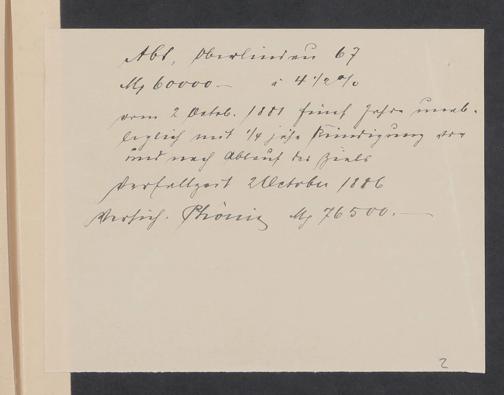 Abs, Oberlindau 67
M 60000.– à 4 1/2 %
vom 2 Octob. 1881 fünf Jahre unab-
leglich mit 1/4 jähr Kündigung vor
und nach Ablauf des Ziels
Verfallzeit 2 October 1886
Versich. Phönix M 76500.—
2